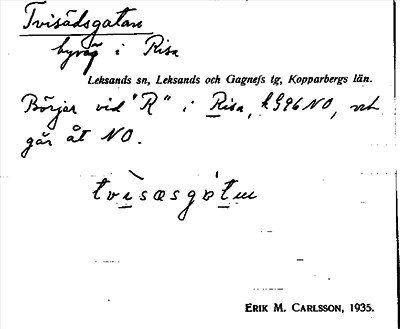 Tvisädsgatan
byväg i Risa
Leksands sn, Leksands och Gagnefs tg, Kopparbergs län.
Börjar vid "R" i Risa, k 996 NO, och
går åt NO.
tvìsæsgátm
ERIK M. CARLSSON, 1935.